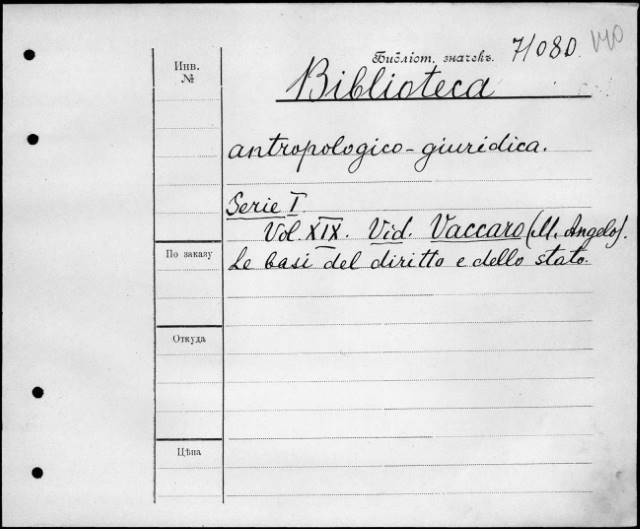 Инв.
№
Библіот. значекъ. 7/080
Biblioteca
antropologico-giuridica.
Serie I.
Vol. XIX. Vid. Vaccaro (M. Angelo).
Le basi del diritto e dello stato.
По заказу
Откуда
Цѣна